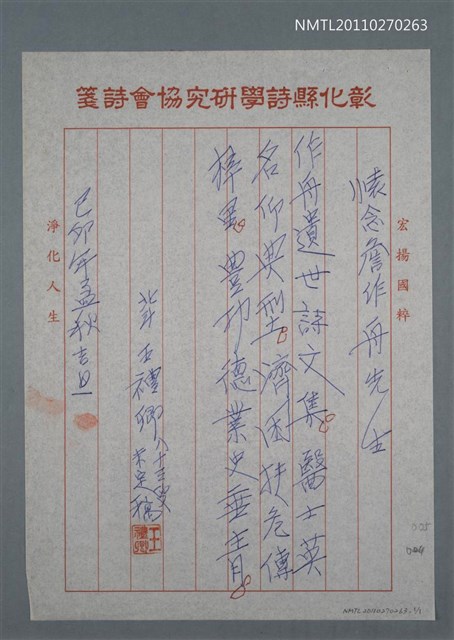 NMTL20110270263
彰化縣詩學研究協會詩箋
宏揚國粹
懷念詹作舟先生
作舟遺世詩文集醫士英
名仰典型濟困扶危傳
梓里豐功德業史垂青
弟王禮卿八十三叟
未定稿
己卯年孟秋吉旦
淨化人生
005
004
NMTL20110270263, 1/1